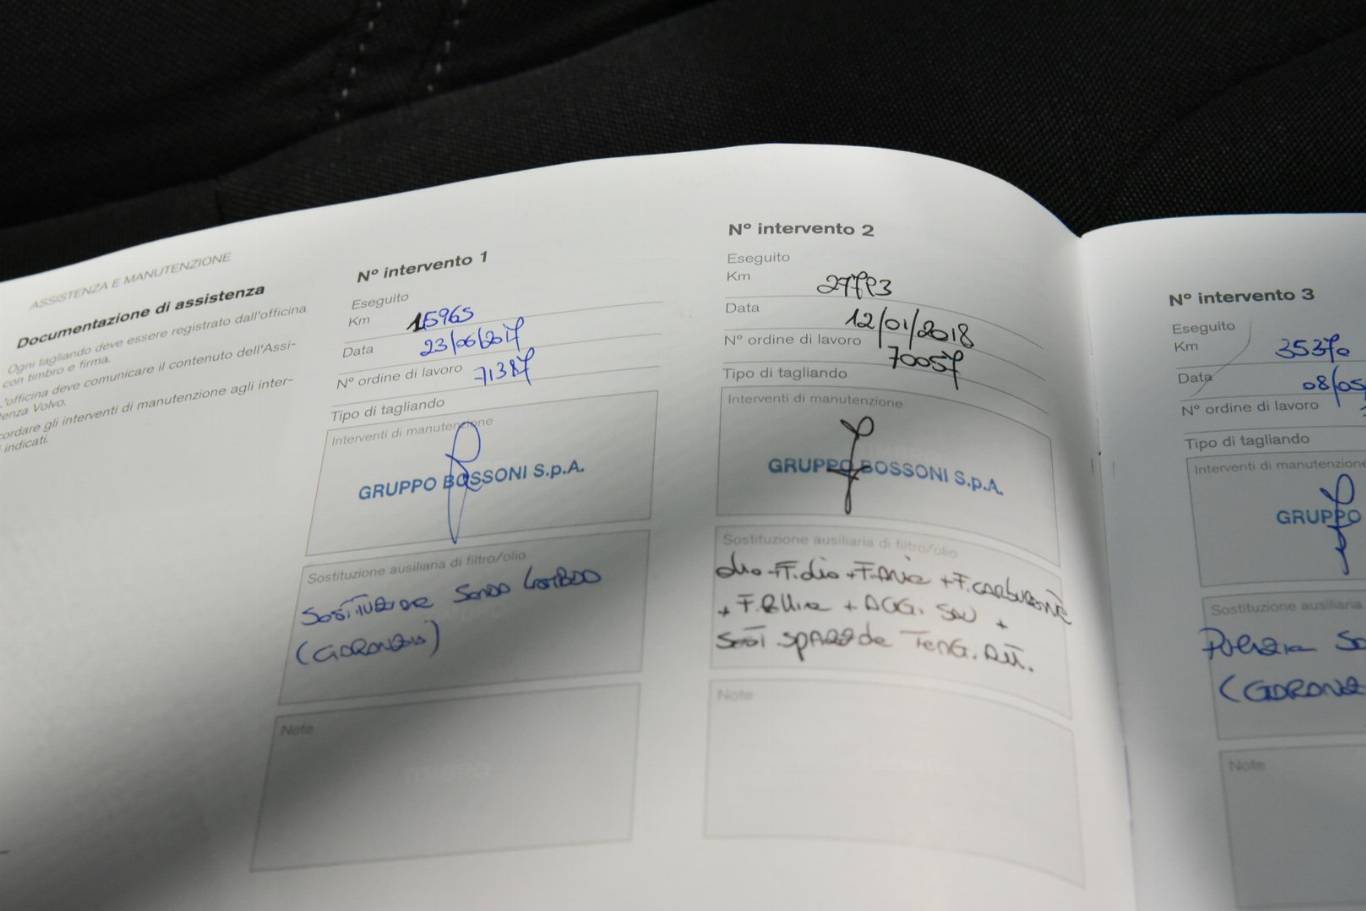 ASSISTENZA E MANUTENZIONE
Documentazione di assistenza
Ogni tagliando deve essere registrato dall'officina
con timbro e firma.
L'officina deve comunicare il contenuto dell'Assi-
enza Volvo.
cordare gli interventi di manutenzione agli inter-
indicati.
Nº intervento 1
Eseguito
Km 15965
Data 23/06/2017
Nº ordine di lavoro 71387
Tipo di tagliando
Interventi di manutenzione
GRUPPO BOSSONI S.p.A.
Sostituzione ausiliaria di filtro/olio
Sonda
Note
Nº intervento 2
Eseguito
Km 27793
Data 12/01/2018
Nº ordine di lavoro 70057
Tipo di tagliando
Interventi di manutenzione
GRUPPO BOSSONI S.p.A.
Sostituzione ausiliaria di filtro/olio
olio + F. olio + F. Aria + F. carburante
+ +
Note
Nº intervento 3
Eseguito
Km 35370
Data 08/05
Nº ordine di lavoro
Tipo di tagliando
Interventi di manutenzione
GRUPPO
Sostituzione ausiliaria
Note